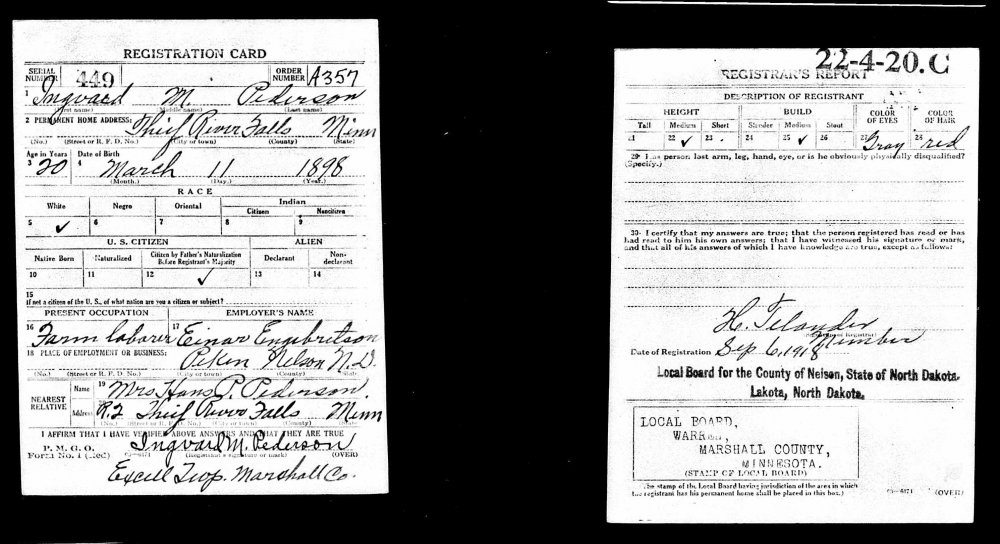 REGISTRATION CARD
SERIAL NUMBER 449 ORDER NUMBER A357
1 Ingvard M. Pederson
(First name) (Middle name) (Last name)
2 PERMANENT HOME ADDRESS: Thief River Falls Minn
(No.) (Street or R. F. D. No.) (City or town) (County) (State)
Age in Years Date of Birth
3 20 4 March 11 1898
(Month.) (Day.) (Year.)
RACE
White Negro Oriental Indian
Citizen Noncitizen
5 ✓ 6 7 8 9
U. S. CITIZEN ALIEN
Native Born Naturalized Citizen by Father's Naturalization Before Registrant's Majority Declarant Non-declarant
10 11 12 ✓ 13 14
15
If not a citizen of the U. S., of what nation are you a citizen or subject?
PRESENT OCCUPATION EMPLOYER'S NAME
16 Farm laborer 17 Einar Engebritson
18 PLACE OF EMPLOYMENT OR BUSINESS: Pekin Nelson N.D.
(No.) (Street or R. F. D. No.) (City or town) (County) (State)
NEAREST RELATIVE Name 19 Mrs Hans P. Pederson.
Address R.2 Thief River Falls Minn
(No.) (Street or R. F. D. No.) (City or town) (County) (State)
I AFFIRM THAT I HAVE VERIFIED ABOVE ANSWERS AND THAT THEY ARE TRUE
P. M. G. O.
Form No. 1 (Red) Ingvard M. Pederson
(Registrant's signature or mark) (OVER)
Excell Twp. Marshall Co.
22-4-20.C
REGISTRAR'S REPORT
DESCRIPTION OF REGISTRANT
HEIGHT BUILD COLOR OF EYES COLOR OF HAIR
Tall Medium Short Slender Medium Stout
21 22 ✓ 23 24 25 ✓ 26 27 Gray 28 red
29 Has person lost arm, leg, hand, eye, or is he obviously physically disqualified?
(Specify.)
30 I certify that my answers are true; that the person registered has read or has
had read to him his own answers; that I have witnessed his signature or mark,
and that all of his answers of which I have knowledge are true, except as follows:
H. Telander
(Signature of Registrar)
Member
Date of Registration Sep. 6, 1918
Local Board for the County of Nelson, State of North Dakota.
Lakota, North Dakota.
LOCAL BOARD,
WARREN,
MARSHALL COUNTY,
MINNESOTA.
(STAMP OF LOCAL BOARD)
(The stamp of the Local Board having jurisdiction of the area in which
the registrant has his permanent home shall be placed in this box.)
03—6171 (OVER)